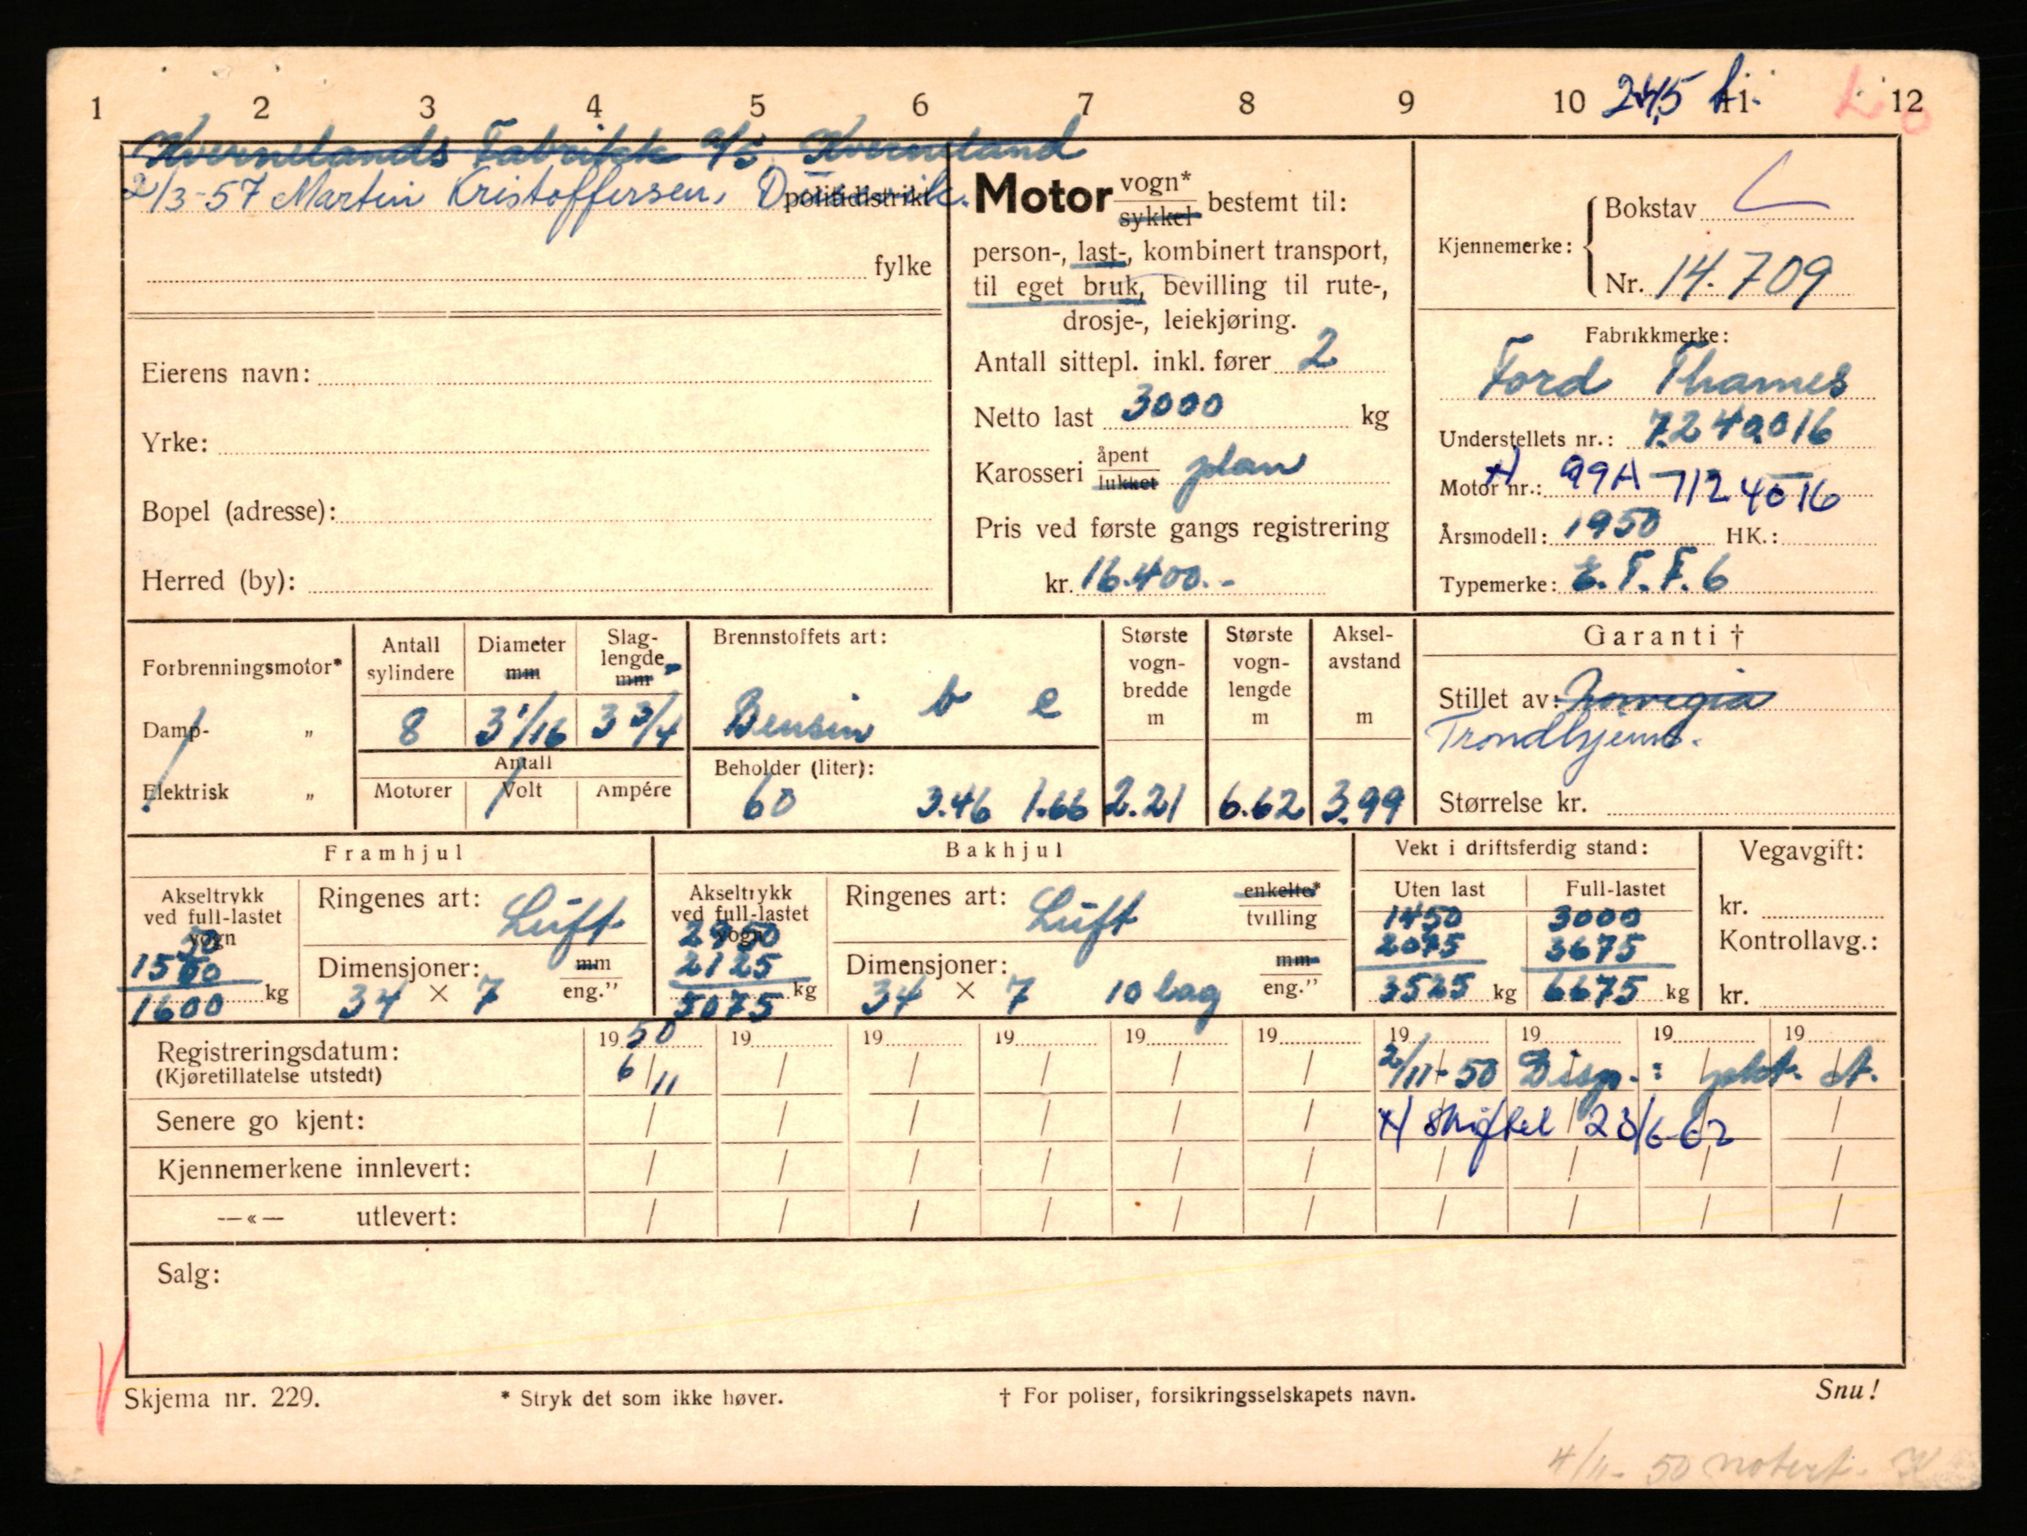 1 2 3 4 5 6 7 8 9 10 11 12
Kvernelands Fabrikk a/s, Kverneland
2/3-57 Martin Kristoffersen, politidistrikt
fylke
Eierens navn:
Yrke:
Bopel (adresse):
Herred (by):
Motor vogn* sykkel bestemt til:
person-, last-, kombinert transport,
til eget bruk, bevilling til rute-,
drosje-, leiekjøring.
Antall sittepl. inkl. fører 2
Netto last 3000 kg
Karosseri åpent lukket plan
Pris ved første gangs registrering
kr. 16.400.-
Kjennemerke: Bokstav L
Nr. 14.709
Fabrikkmerke:
Ford Thames
Understellets nr.: 7240016
Motor nr.: 99A-7124016
Årsmodell: 1950 HK.:
Typemerke: E.T.F.6
Forbrenningsmotor*
Damp- "
Elektrisk "
Antall sylindere 8
Diameter mm 3 1/16
Slaglengde mm 3 3/4
Antall
Motorer Volt Ampére
Brennstoffets art:
Bensin b e
Beholder (liter):
60 3.46 1.66
Største vogn-bredde m 2.21
Største vogn-lengde m 6.62
Aksel-avstand m 3.99
Garanti †
Stillet av: Norvegia
Trondhjems.
Størrelse kr.
Framhjul
Akseltrykk ved full-lastet vogn
50
1550
1600 kg
Ringenes art: Luft
Dimensjoner: mm
34 × 7 eng."
Bakhjul
Akseltrykk ved full-lastet vogn
2950
2125
5075 kg
Ringenes art: Luft enkelte* tvilling
Dimensjoner: mm
34 × 7 10 lag eng."
Vekt i driftsferdig stand:
Uten last Full-lastet
1450 3000
2075 3675
3525 kg 6675 kg
Vegavgift:
kr.
Kontrollavg.:
kr.
19 50 19 19 19 19 19 19 19 19 19
Registreringsdatum: 6/11 2/11-50 Disp.: pkt. d.
(Kjøretillatelse utstedt)
Senere go kjent: x) skiftet 23/6-62
Kjennemerkene innlevert:
—«— utlevert:
Salg:
Skjema nr. 229. * Stryk det som ikke høver. † For poliser, forsikringsselskapets navn. Snu!
4/11-50 notert. K